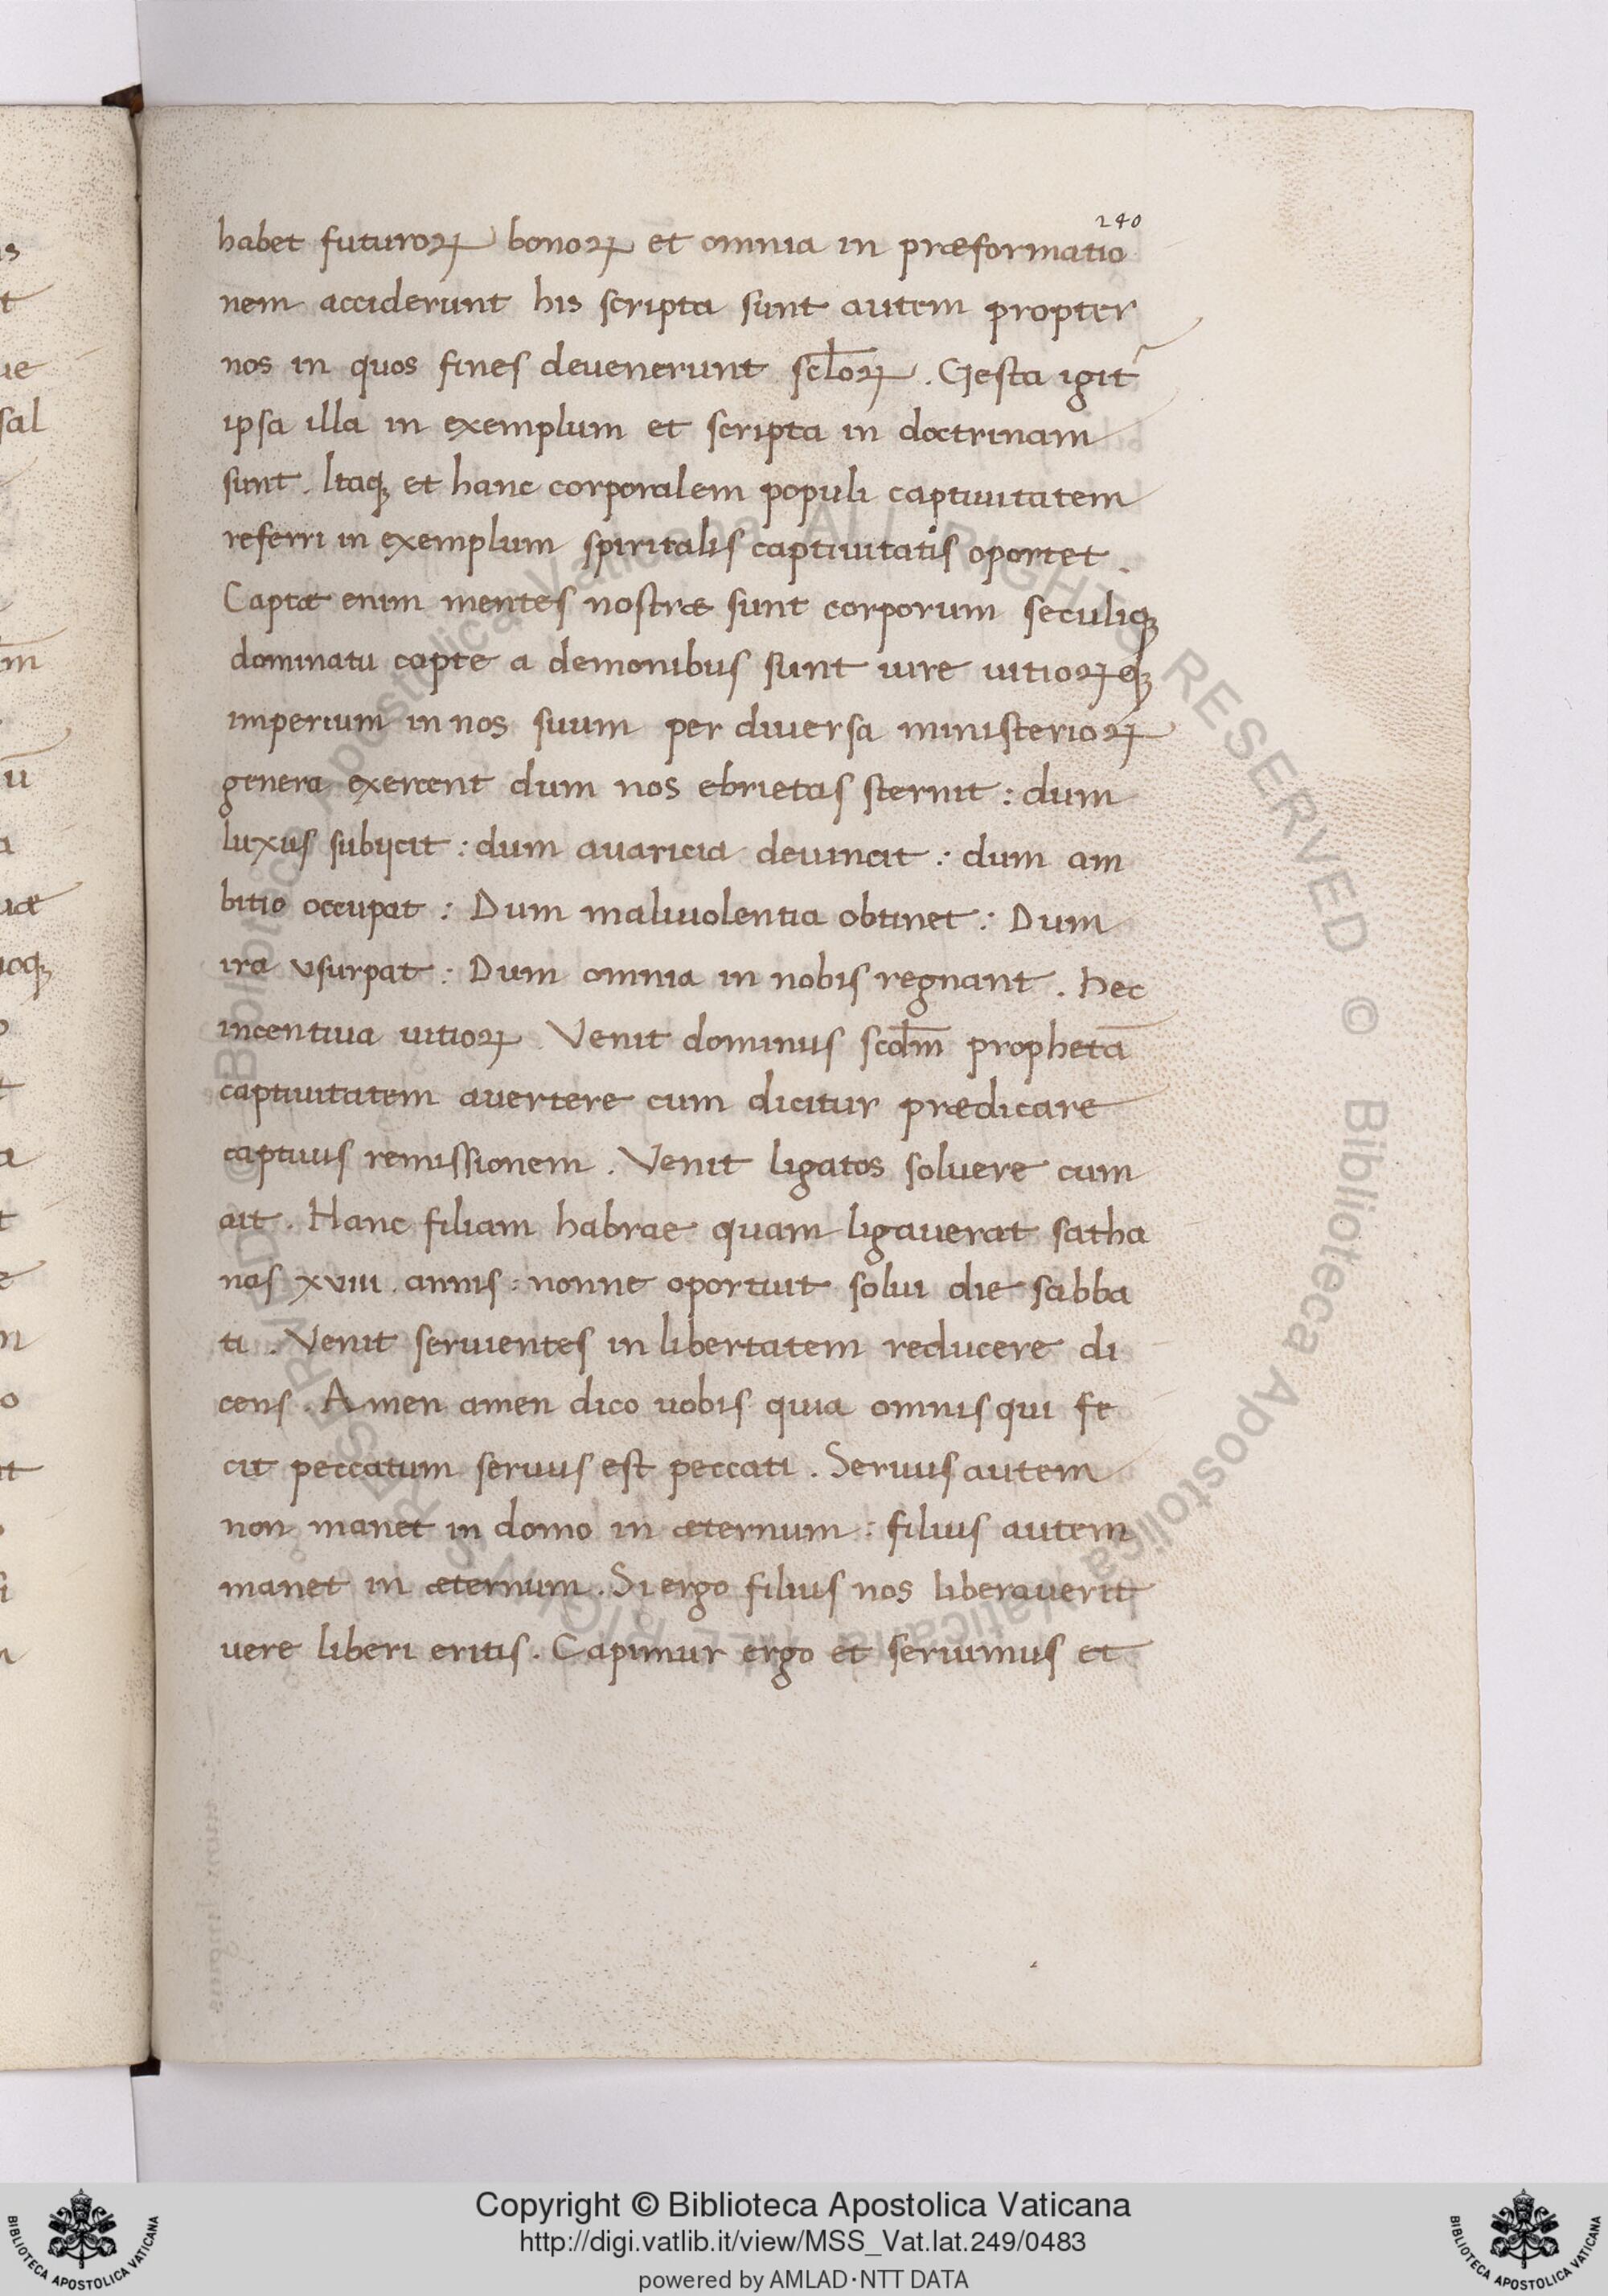 240
habet futuroꝝ bonoꝝ et omnia in præformatio
nem acciderunt his scripta sunt autem propter
nos in quos fines deuenerunt scl̅oꝝ. Gesta igit᷑
ipsa illa in exemplum et scripta in doctrinam
sunt. Itaqꝫ et hanc corporalem populi captiuitatem
referri in exemplum spiritalis captiuitatis oportet.
Captæ enim mentes nostræ sunt corporum seculiqꝫ
dominatu capte a demonibus sunt iure uitioꝝeqꝫ
imperium in nos suum per diuersa ministerioꝝ
genera exercent dum nos ebrietas sternit: dum
luxus subijcit: dum auaricia deuincit: dum am
bitio occupat: Dum maliuolentia obtinet: Dum
ira vsurpat: Dum omnia in nobis regnant. hec
incentiua uitioꝝ. Venit dominus scd̅m prophetā
captiuitatem auertere cum dicitur prædicare
captiuis remissionem. Venit ligatos soluere cum
ait. Hanc filiam habrae quam ligauerat satha
nas xviii. annis: nonne oportuit solui die sabba
ti. Venit seruientes in libertatem reducere di
cens. Amen amen dico uobis quia omnis qui fe
cit peccatum seruus est peccati. Seruus autem
non manet in domo in æternum: filius autem
manet in æternum. Si ergo filius nos liberauerit
uere liberi eritis. Capimur ergo et seruimus et
Copyright © Biblioteca Apostolica Vaticana
http://digi.vatlib.it/view/MSS_Vat.lat.249/0483
powered by AMLAD·NTT DATA
BIBLIOTECA APOSTOLICA VATICANA
BIBLIOTECA APOSTOLICA VATICANA